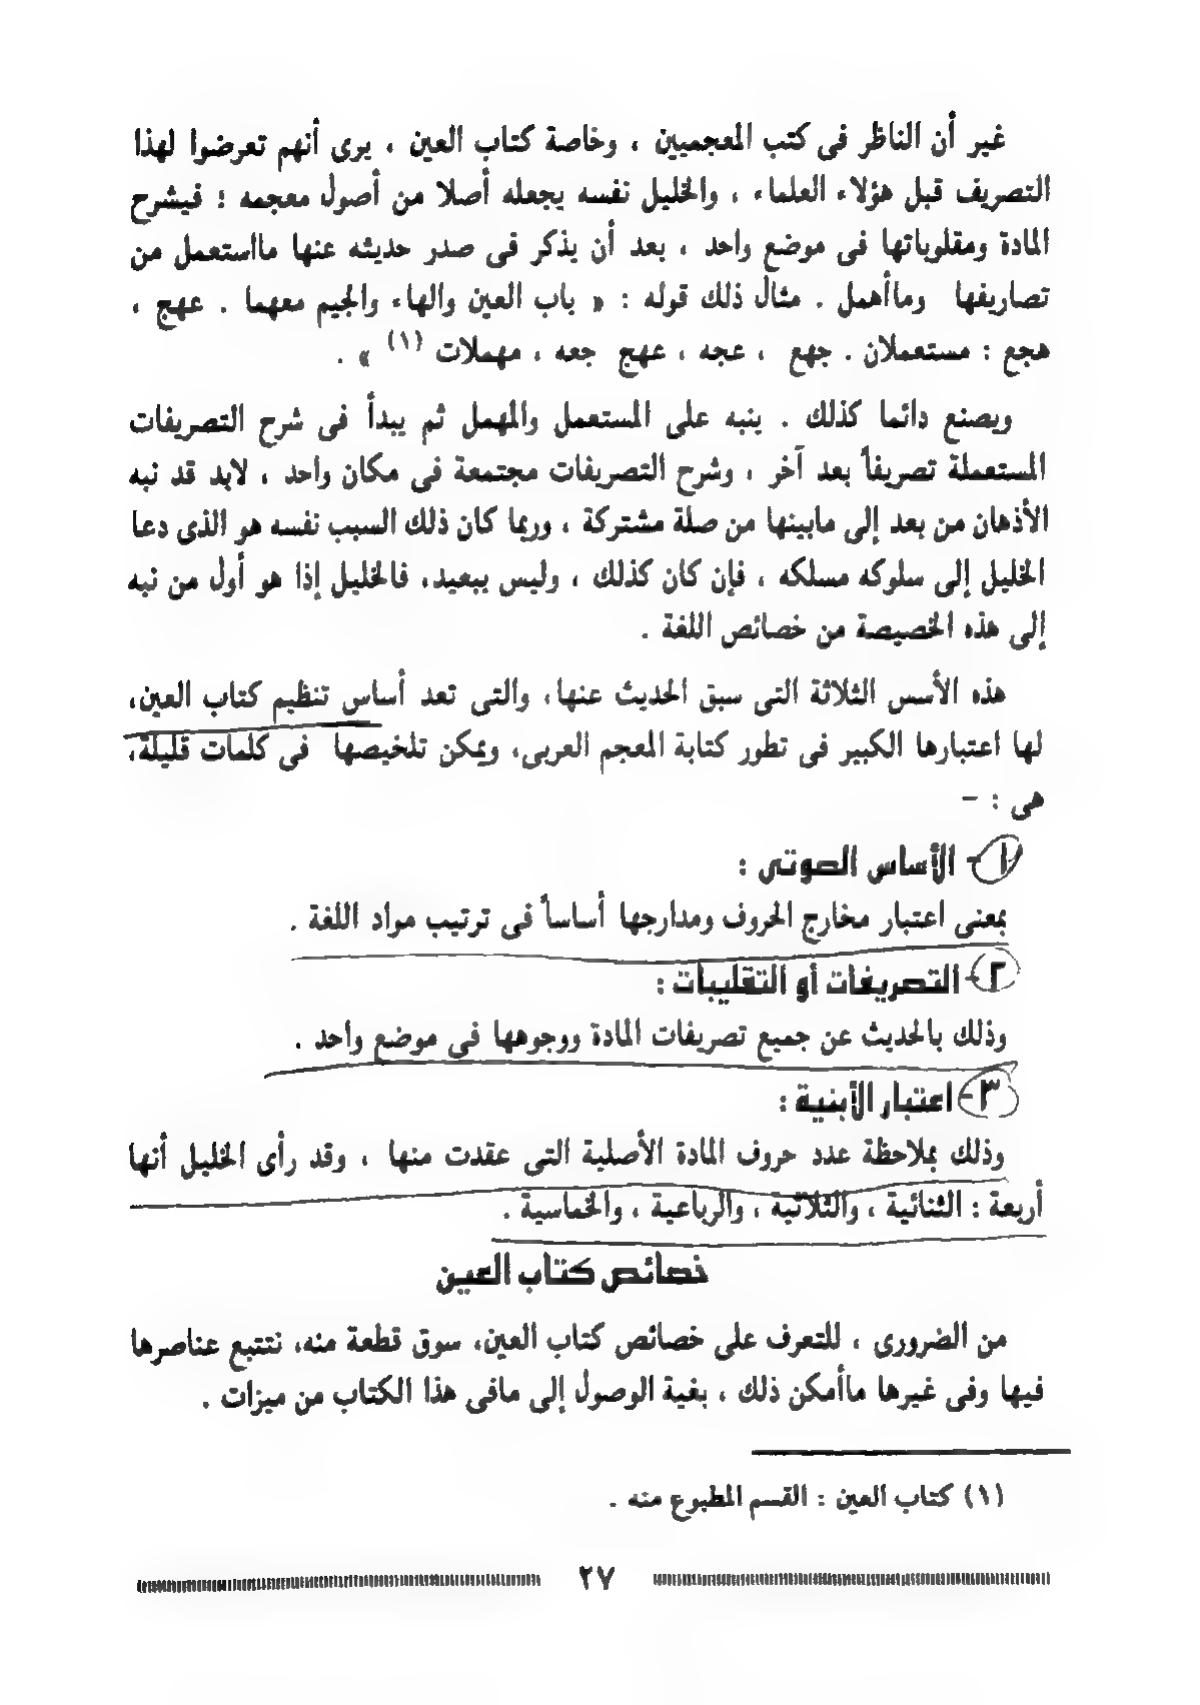 غير أن الناظر فى كتب المعجميين ، وخاصة كتاب العين ، يرى أنهم تعرضوا لهذا
التصريف قبل هؤلاء العلماء ، والخليل نفسه يجعله أصلا من أصول معجمه ؛ فيشرح
المادة ومقلوباتها فى موضع واحد ، بعد أن يذكر فى صدر حديثه عنها مااستعمل من
تصاريفها وماأهمل . مثال ذلك قوله : « باب العين والهاء والجيم معهما . عهج ،
هجع : مستعملان . جهع ، عجه ، عهج جعه ، مهملات (١) » .
ويصنع دائما كذلك . ينبه على المستعمل والمهمل ثم يبدأ فى شرح التصريفات
المستعملة تصريفاً بعد آخر ، وشرح التصريفات مجتمعة فى مكان واحد ، لابد قد نبه
الأذهان من بعد إلى مابينها من صلة مشتركة ، وربما كان ذلك السبب نفسه هو الذى دعا
الخليل إلى سلوكه مسلكه ، فإن كان كذلك ، وليس ببعيد، فالخليل إذا هو أول من نبه
إلى هذه الخصيصة من خصائص اللغة .
هذه الأسس الثلاثة التى سبق الحديث عنها، والتى تعد أساس تنظيم كتاب العين،
لها اعتبارها الكبير فى تطور كتابة المعجم العربى، ويمكن تلخيصها فى كلمات قليلة،
هى : –
١- الأساس الصوتى :
بمعنى اعتبار مخارج الحروف ومدارجها أساساً فى ترتيب مواد اللغة .
٢- التصريفات أو التقليبات :
وذلك بالحديث عن جميع تصريفات المادة ووجوهها فى موضع واحد .
٣- اعتبار الأبنية :
وذلك بملاحظة عدد حروف المادة الأصلية التى عقدت منها ، وقد رأى الخليل أنها
أربعة : الثنائية ، والثلاثية ، والرباعية ، والخماسية .
خصائص كتاب العين
من الضرورى ، للتعرف على خصائص كتاب العين، سوق قطعة منه، نتتبع عناصرها
فيها وفى غيرها ماأمكن ذلك ، بغية الوصول إلى مافى هذا الكتاب من ميزات .
(١) كتاب العين : القسم المطبوع منه .
٢٧